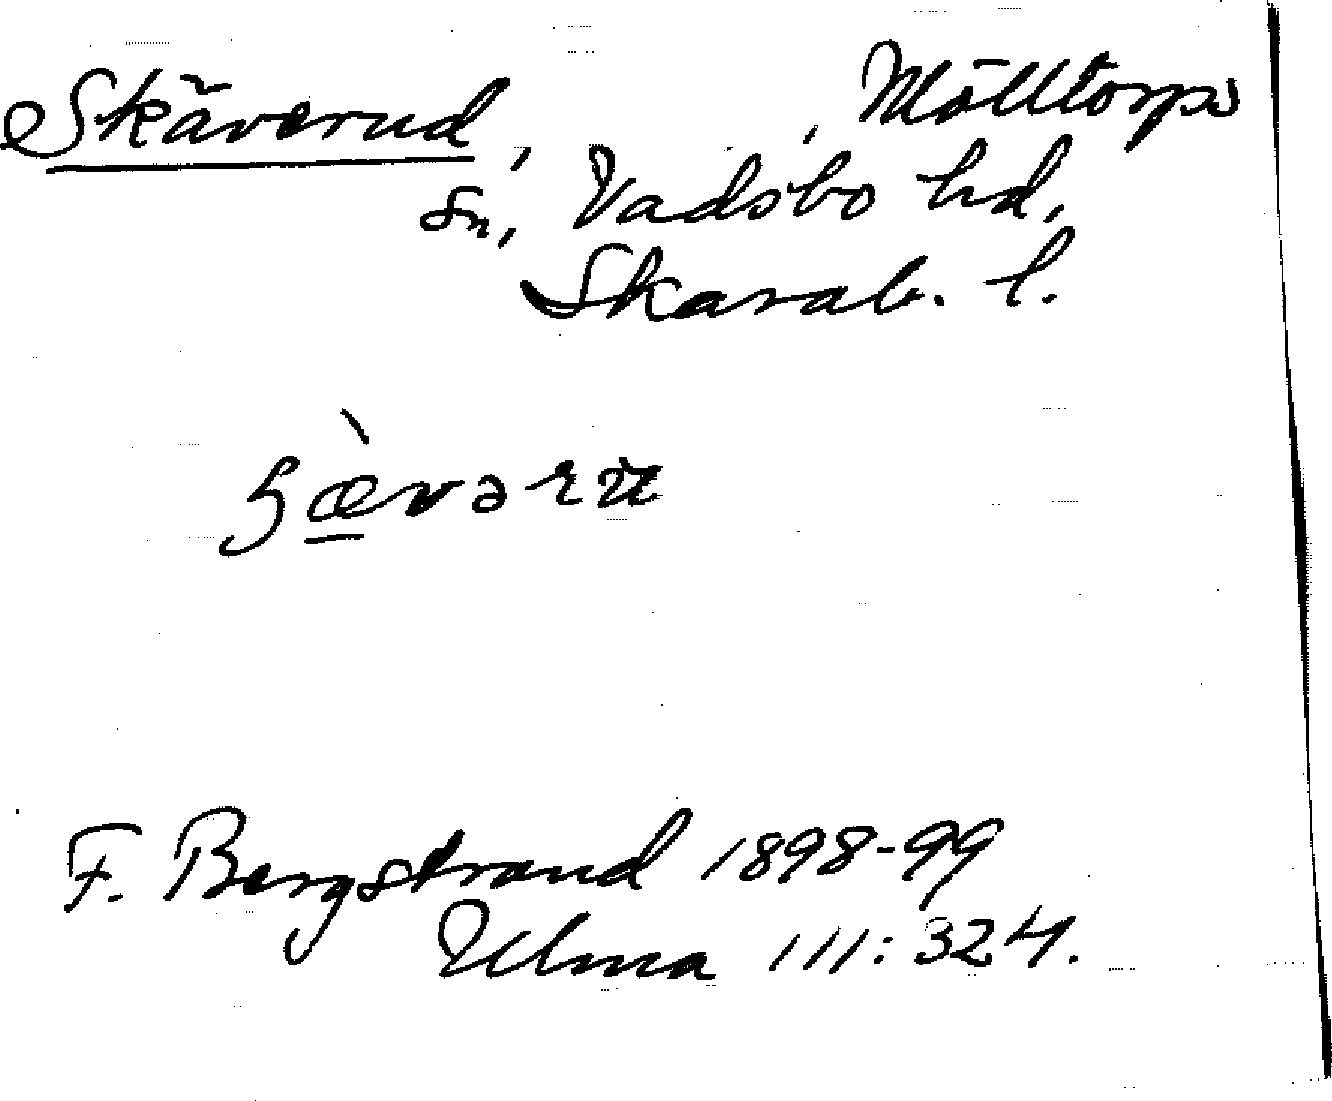 Skäverud, , Mölltorps
sn, Vadsbo hd,
Skarab. l.
F. Bergstrand 1898-99
Ulma 111:324.